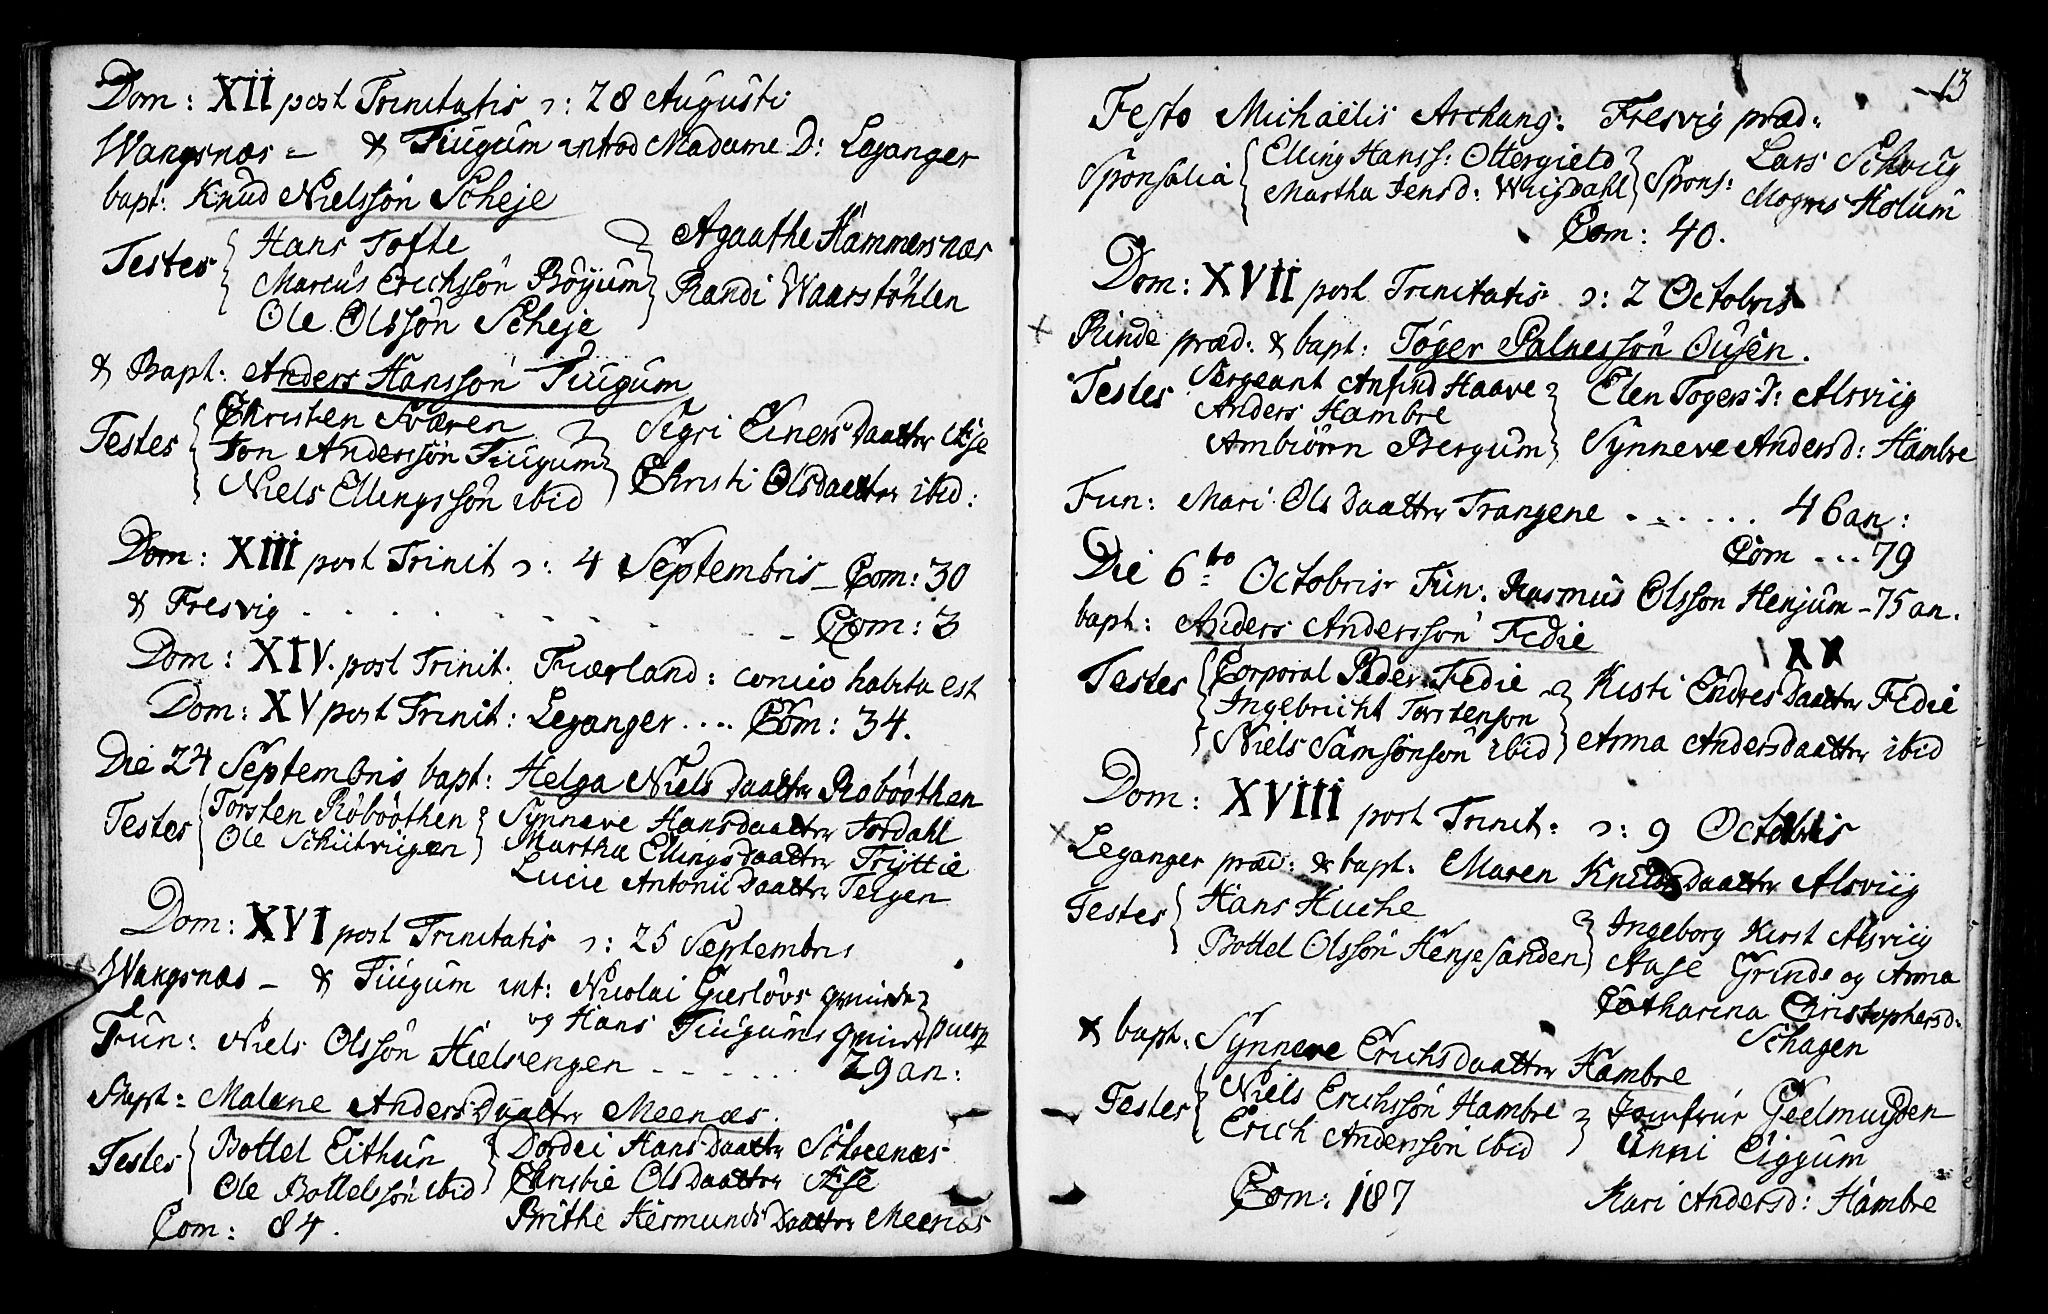 Dom: XII post Trinitatis ɔ: 28 Augusti
Wangsnæs = & Tiugum introd Madame D: Leganger
bapt: Knud Nielssön Scheje
Testes Hans Tofte
Marcus Erichssön Böyum
Ole Olssön Scheje
Agaathe Hammersnæs
Randi Waarstöhlen
& Bapt: Anders Hanssön Tiugum
Testes Christen Sværen
Jon Anderssön Tiugum
Niels Ellingssön ibid
Sigri Einers Daatter Æse
Christi Olsdaatter ibid:
Dom: XIII post Trinit ɔ: 4 Septembris – Com: 30
& Fresvig . . . . . . . – Com: 3
Dom: XIV. post Trinit. Fiærland: concio habita est
Dom: XV post Trinit: Leganger .... Com: 34.
Die 24 Septembris bapt: Helga Niels Daatter Roböothen
Testes Torsten Röböothen
Ole Schiitviigen
Synneve Hansdaatter Jordahl
Martha Ellingsdaatter Trijttie
Lucie Antonii Daatter Teigen
Dom: XVI post Trinitatis ɔ: 25 Septembris
Wangsnæs – & Tiugum int: Nicolai Gierlövs qvinde
og Hans Tiugums qvinde
Fun: Niels Olssön Hielsengen – – . . . . . 29 an:
Bapt: Malene Anders Daatter Meenæs.
Testes Bottel Eithun
Ole Bottelssön ibid
Dordei Hans Daatter Scheenæs
Christie Olsdaatter Æse
Brithe Hermunds Daatter Meenæs
Com: 84.
13
Festo Michaëlis Archang: Fresvig præd:
Sponsalia Elling Hanss: Ottergield
Martha Jensd: Wiigdahl
Spons: Lars Schviig
Mogns Holum
Com: 40.
Dom: XVII post Trinitatis ɔ: 2 Octobris
Rinde præd: & bapt: Töger Palnessön Ousen.
Testes Sergeant Anfind Haave
Anders Hambre
Ambiörn Bergum
Elen Togers D: Alsviig
Synneve Andersd: Hambre
Fun: Mari Ols Daatter Trangene . – . . . . 46 an:
Com ... 79
Die 6to Octobris Fun: Rasmus Olsson Henjum – 75 an.
bapt: Anders Anderssön Fedie
XX
Testes Corporal Peder Fedie
Ingebricht Torstenson
Niels Samsonsön ibid
Kisti Endres Daatter Fedie
Anna Andersdaatter ibid
Dom: XVIII post Trinit: ɔ: 9 Octobris
Leganger præd: & bapt: Maren Knudsdaatter Alsviig
Testes Hans Huche
Bottel Olssön Henjesanden
Ingeborg Kirst Alsviig
Aase Grinde og Anna
Catharina Christophersd:
Schagen
& bapt: Synneve Erichsdaatter Hambre
Testes Niels Erichssön Hambre
Erich Anderssön ibid
Jomfrur Geelmuyden
Unni Eiggum
Kari Andersd: Hambre
Com: 187